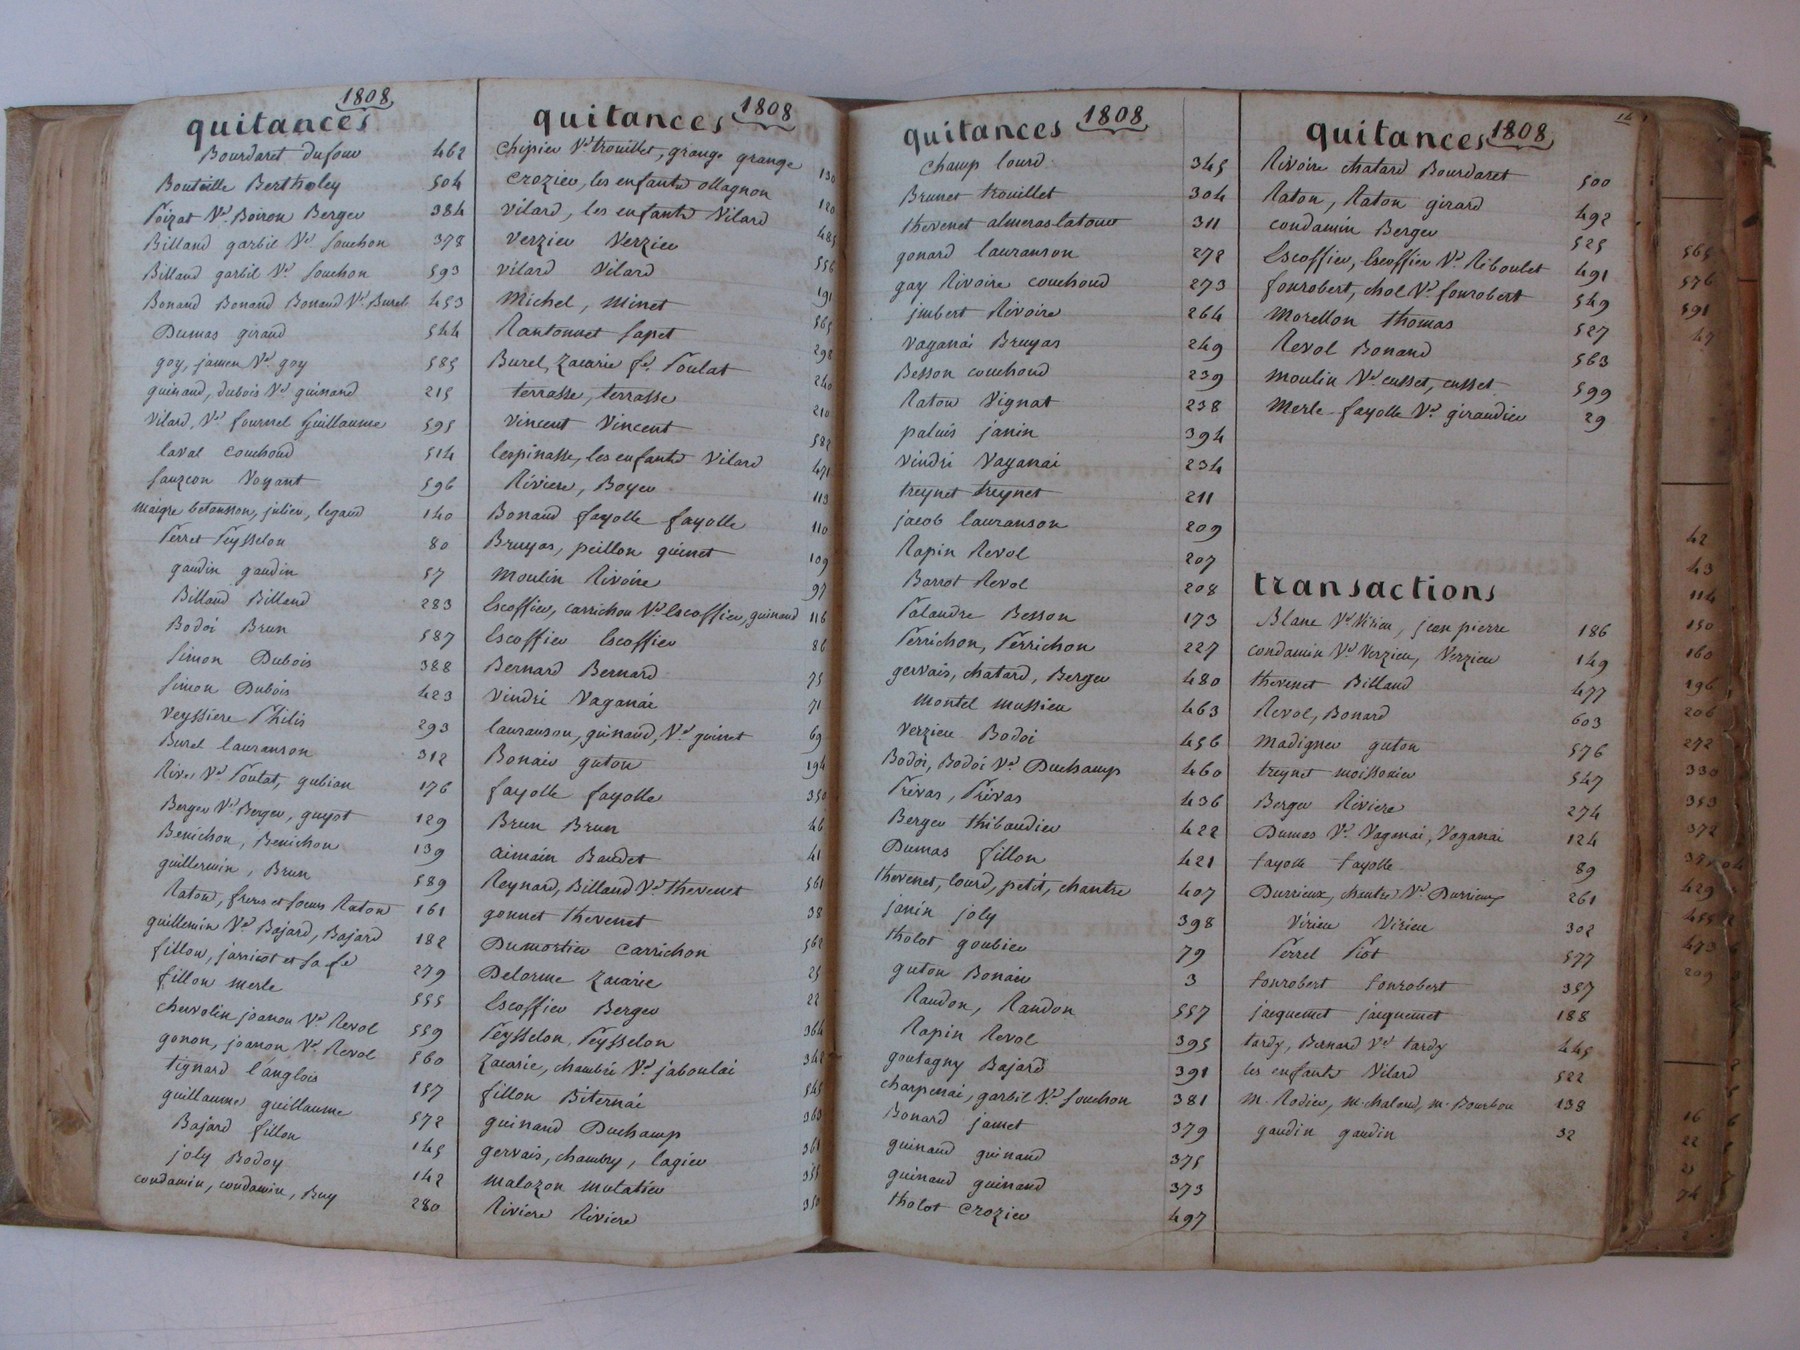 1808
quitances
Bourdaret dufour 462
Bouteille Bertholey 504
Poizat Ve. Boiron Berger 384
Billand garbil Ve. souchon 378
Billand garbil Ve. souchon 593
Bonand Bonand Bonand Ve. Burel 453
Dumas giraud 544
goy, jamen Ve. goy 585
guinand, dubois Ve. guinand 215
Vilard, Ve. fournel guillaume 595
laval couchoud 514
sauzeon Voyant 596
maigre betousson, julien, legand 140
Perret Peysselon 80
gaudin gaudin 57
Billand Billand 283
Bodoi Brun 587
simon Dubois 388
simon Dubois 423
Veyssiere Philis 293
Burel lauranson 312
Rive Ve. Poulat, gubian 176
Berger Ve. Berger, guyot 129
Benichon, Benichon 139
guillermin, Brun 589
Raton, freres et soeurs Raton 161
guillemin Ve. Bajard, Bajard 182
fillon, jarricot et sa fe 279
fillon merle 555
chervolin joanon Ve. Revol 559
gonon, joanon Ve. Revol 560
tignard l'anglois 157
guillaume guillaume 572
Bajard fillon 145
joly Bodoy 142
condamin, condamin, Buy 280
1808
quitances
chipier Ve. trouillet, grange grange 130
crozier, les enfants ollagnon 120
Vilard, les enfants Vilard 485
Verzier Verzier 556
vilard Vilard 191
Michel, Minet 565
Rantonnet sapet 298
Burel, zacarie fe. Poulat 240
terrasse, terrasse 210
Vincent Vincent 582
lespinasse, les enfants Vilard 471
Riviere, Boyer 113
Bonand fayolle fayolle 110
Bruyas, peillon guinet 109
Moulin Rivoire 97
Escoffier, carrichon Ve. Escoffier, guinand 116
Escoffier Escoffier 86
Bernard Bernard 75
Vindri Vaganai 71
lauranson, guinand, Ve. guinet 69
Bonair guton 194
fayolle fayolle 350
Brun Brun 46
aimain Baudet 41
Reynard, Billand Ve. thevenet 561
gonnet thevenet 38
Dumortier carrichon 562
Delorme zacarie 25
Escoffier Berger 22
Peysselon, Peysselon 364
zacarie, chambri Ve. jaboulai 342
fillon Biternai 545
guinand Duchamp 360
gervais, chambry, lagier 361
malozon mulatier 355
Riviere Riviere 350
quitances 1808
champ lourd 345
Brunet trouillet 304
thevenet almeras-latour 311
gonard lauranson 272
gay Rivoire couchoud 273
jmbert Rivoire 264
Vaganai Bruyas 249
Besson couchoud 239
Raton Vignat 238
paluis janin 394
vindri Vaganai 234
treynet treynet 211
jacob lauranson 209
Rapin Revol 207
Barrot Revol 208
Palandre Besson 173
Perrichon, Perrichon 227
gervais, chatard, Berger 480
montel mussieu 463
Verzieu Bodoi 456
Bodoi, Bodoi Ve. Duchamp 460
Privas, Privas 436
Berger thibaudier 422
Dumas fillon 421
thevenet, lourd, petit, chantre 407
janin joly 398
tholot goubier 79
guton Bonair 3
Randon, Randon 557
Rapin Revol 395
goutagny Bajard 391
charpenai, garbil Ve. souchon 381
Bonard jamet 379
guinand guinand 375
guinand guinand 373
tholot crozier 497
quitances 1808
Rivoire chatard Bourdaret 500
Raton, Raton girard 492
condamin Berger 525
Escoffier, Escoffier Ve. Riboulet 491
fonrobert, chol Ve. fonrobert 549
Morellon thomas 527
Revol Bonand 563
moulin Ve. cusset, cusset 599
Merle fayolle Ve. giraudier 29
transactions
Blanc Ve. Virieu, jean pierre 186
condamin Ve. Verzieu, Verzieu 149
thevenet Billand 477
Revol, Bonard 603
Madignier guton 576
treynet moissonier 547
Berger Riviere 274
Dumas Ve. Vaganai, Vaganai 124
fayolle fayolle 89
Durrieux, chantre Ve. Durrieux 261
Virieu Virieu 302
Perret Piot 577
fonrobert fonrobert 357
jacquemet jacquemet 188
tardy, Bernard Ve. tardy 445
les enfants Vilard 522
m. Rodier, m. chaland, m. Bourbon 138
gaudin gaudin 32
565
576
591
47
42
43
114
150
160
196
206
272
330
353
372
429
455
473
209
16
22
74